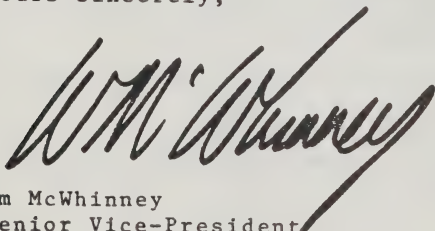 Sincerely,
W McWhinney
m McWhinney
enior Vice-President